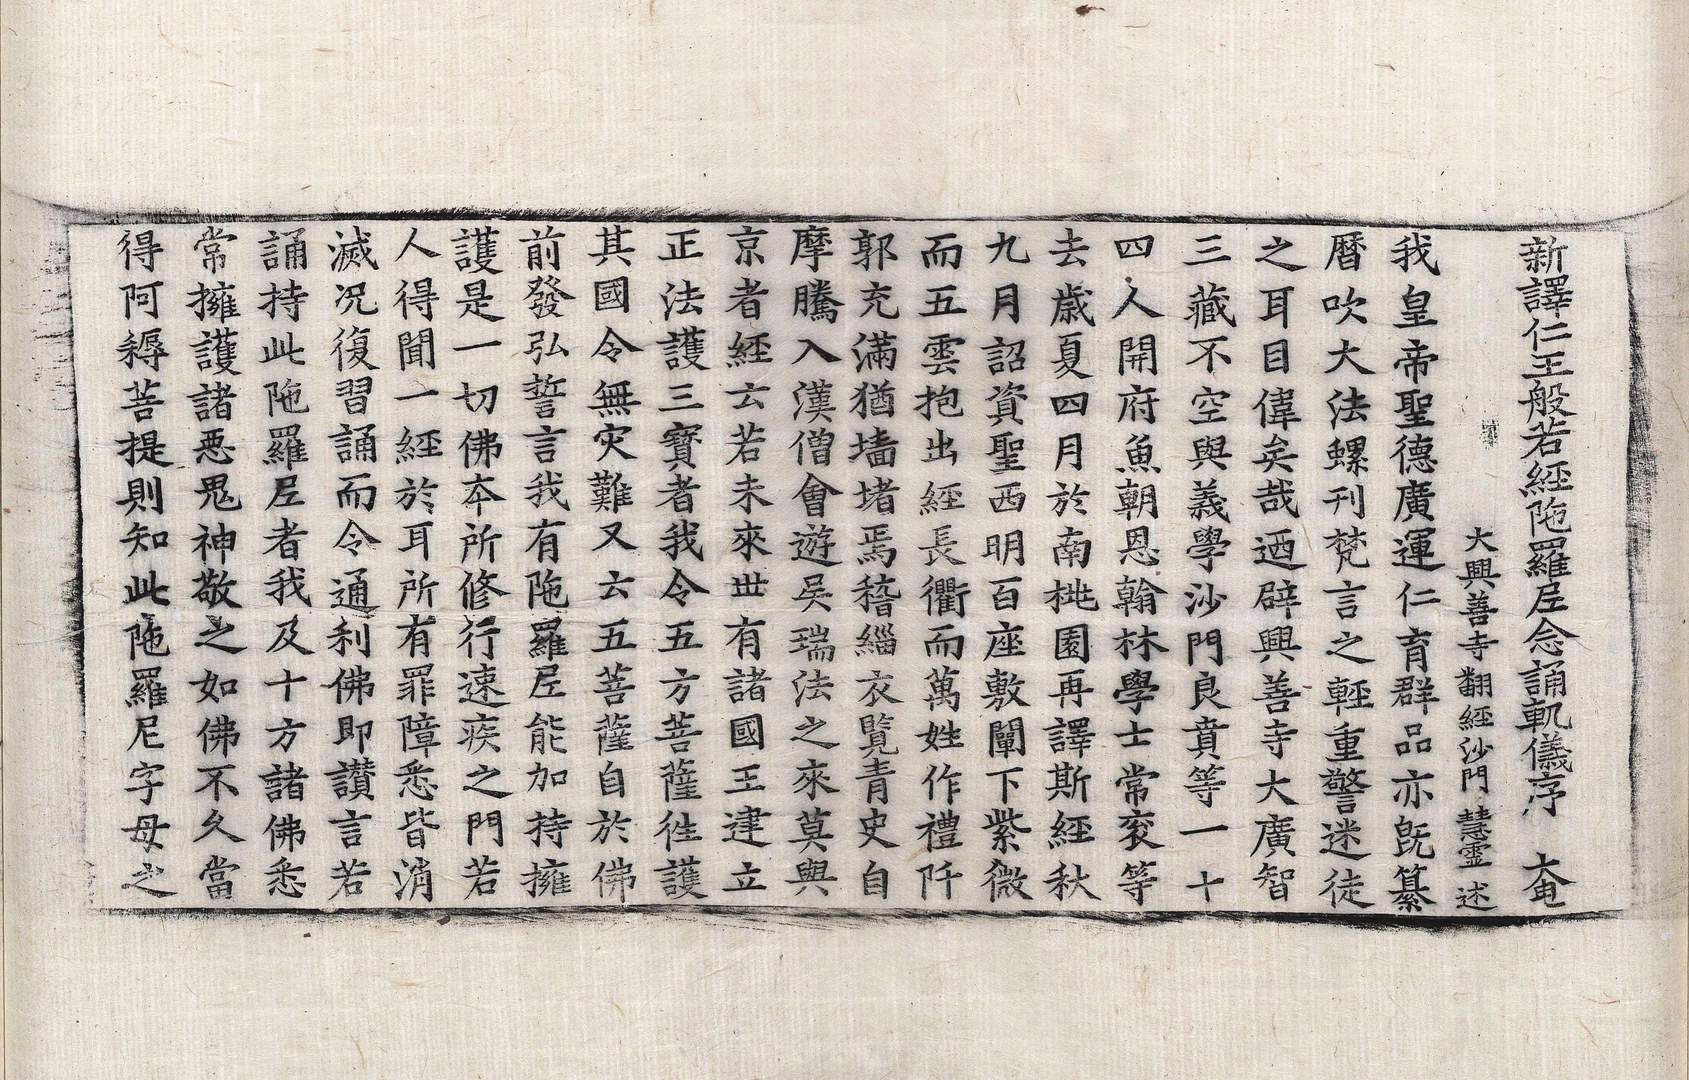 新譯仁王般若經陁羅尼念誦軌儀序 奄
大興善寺翻經沙門 慧靈 述
我皇帝聖德廣運仁育群品亦旣纂
曆吹大法螺刊梵言之輕重警迷徒
之耳目偉矣哉迺辟興善寺大廣智
三藏不空與義學沙門良賁等一十
四人開府魚朝恩翰林學士常袞等
去歲夏四月於南桃園再譯斯經秋
九月詔資聖西明百座敷闡下紫微
而五雲抱出經長衢而萬姓作禮阡
郭充滿猶墻堵焉稽緇衣覽青史自
摩騰入漢僧會遊吳瑞法之來莫與
京者經云若未來世有諸國王建立
正法護三寶者我令五方菩薩往護
其國令無灾難又云五菩薩自於佛
前發弘誓言我有陁羅尼能加持擁
護是一切佛本所修行速疾之門若
人得聞一經於耳所有罪障悉皆消
滅况復習誦而令通利佛即讃言若
誦持此陁羅尼者我及十方諸佛悉
常擁護諸惡鬼神敬之如佛不久當
得阿耨菩提則知此陁羅尼字母之